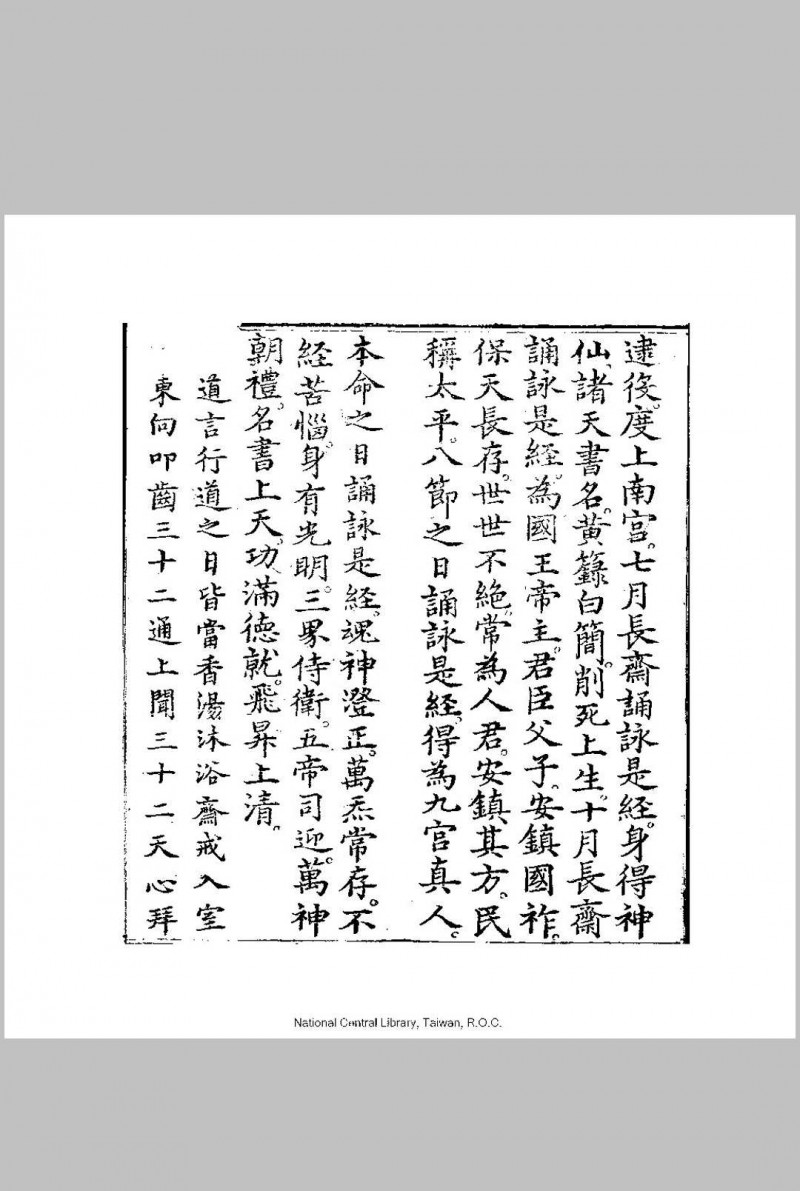 逮後。度上南宫。七月長齋誦詠是經。身得神
仙、諸天書名。黃籙白簡。削死上生。十月長齋
誦詠是經。為國王帝主。君臣父子。安鎮國祚。
保天長存。世世不絶。常為人君。安鎮其方。民
稱太平。八節之日誦詠是經。得為九宫真人。
本命之日誦詠是經。魂神澄正。萬炁常存。不
経苦惱。身有光明。三界侍衛。五帝司迎。萬神
朝禮。名書上天。功滿德就。飛昇上清。
道言行道之日皆當香湯沐浴齋戒入室
東向叩齒三十二通上聞三十二天心拜
National Central Library, Taiwan, R.O.C.